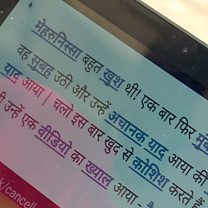 मेहरूनिस्सा बहुत खुश थी! एक बार फिर
वह सुबह उठी और उन्हें अचानक याद आया की
याद आया । चलो इस बार खुद से कोशिश करते हैं
उन्हें एक वीडियो का ख्याल आया.
k/cancel